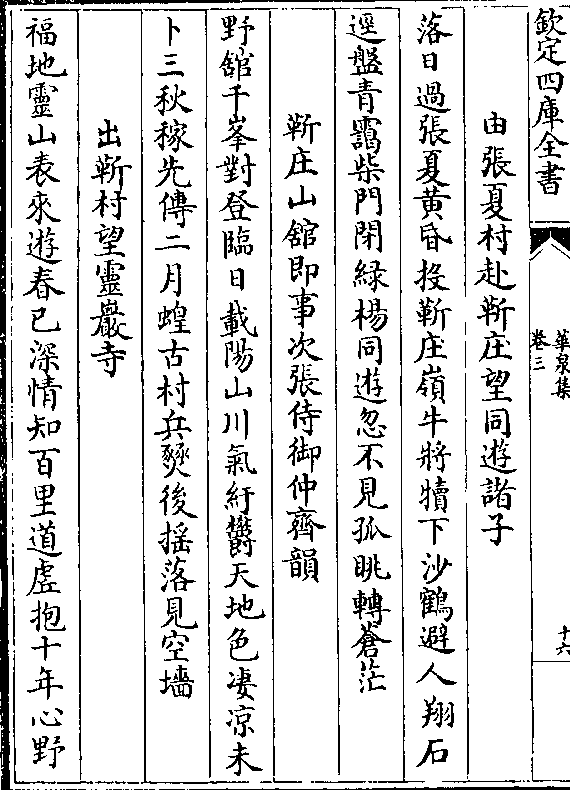 欽定四庫全書
華泉集
卷三
十六
由張夏村赴靳庄望同遊諸子
落日過張夏黃昏投靳庄嶺牛將犢下沙鶴避人翔石
逕盤青靄柴門閉綠楊同遊忽不見孤眺轉蒼茫
靳庄山舘即事次張侍御仲齊韻
野舘千峯對登臨日載陽山川氣紆鬱天地色凄涼未
卜三秋稼先傳二月蝗古村兵燹後揺落見空墻
出靳村望靈巖寺
福地靈山表來遊春已深情知百里道虛抱十年心野